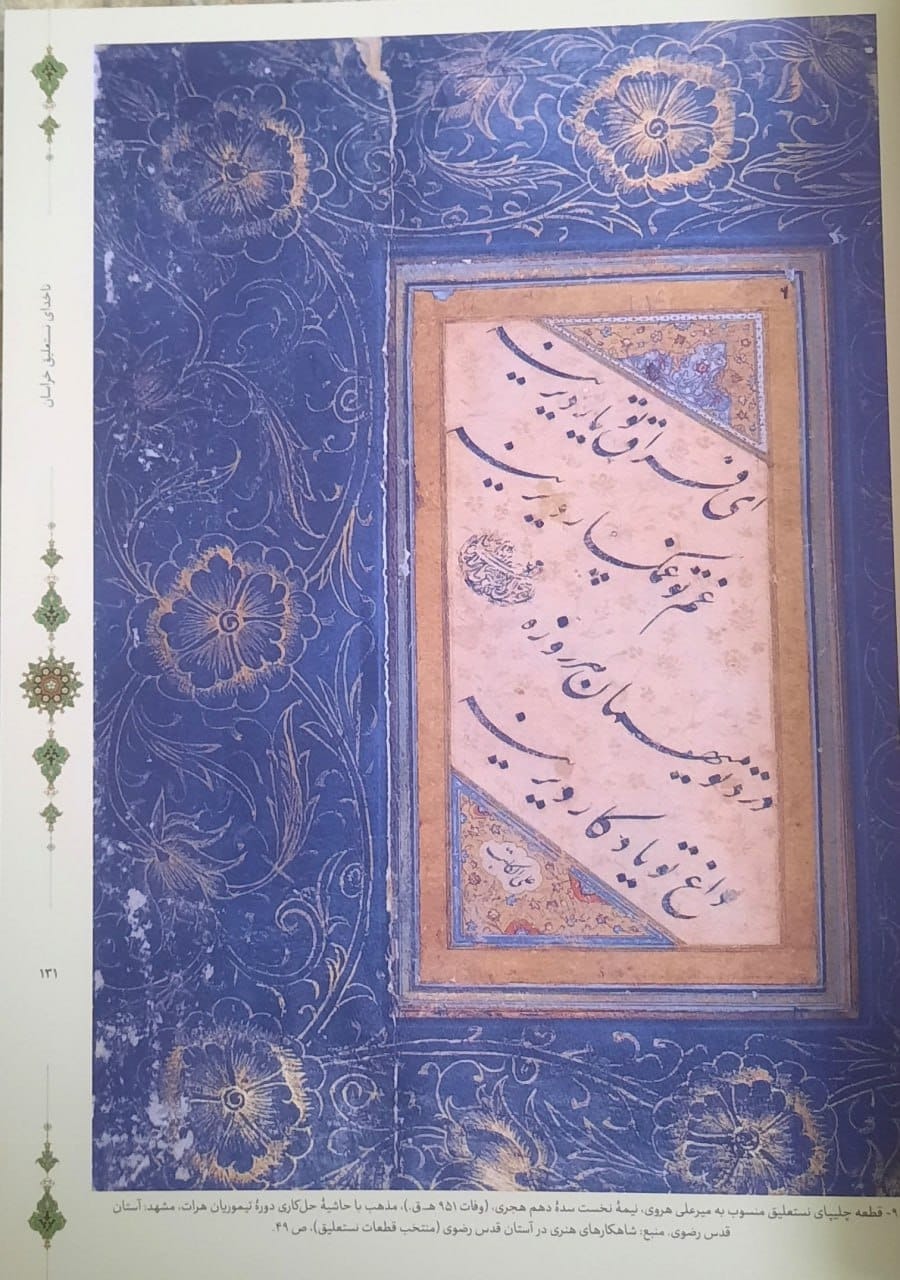 ناخدای نستعلیق خراسان
ای فراق تو یار دیرینه
غم تو غمگسار دیرینه
درد تو میهمان هر روزه
داغ تو یادگار دیرینه
علی الکاتب
۱۳۱
۹- قطعه چلیپای نستعلیق منسوب به میرعلی هروی، نیمهٔ نخست سدهٔ دهم هجری، (وفات ۹۵۱ هـ.ق.)، مذهب با حاشیهٔ حل‌کاری دورهٔ تیموریان هرات، مشهد: آستان
قدس رضوی، منبع: شاهکارهای هنری در آستان قدس رضوی (منتخب قطعات نستعلیق)، ص ۴۹.